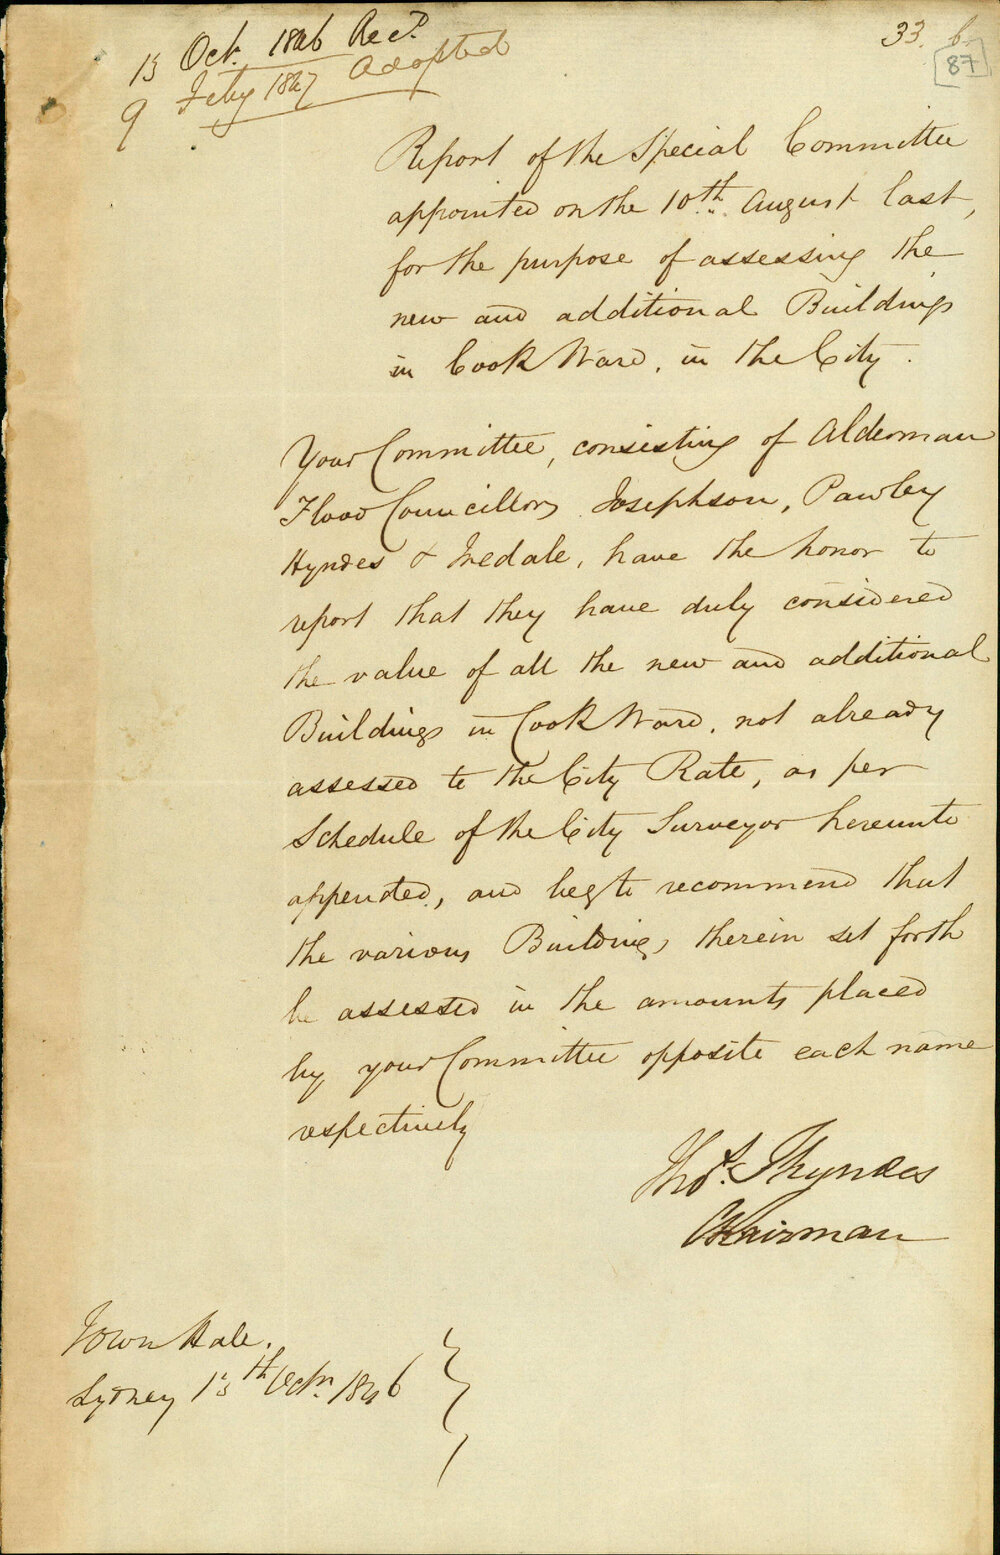 13 Oct. 1846 Recd.
9 Feby 1847 Adopted
33.
87
Report of the Special Committee
appointed on the 10th. August last,
for the purpose of assessing the
new and additional Buildings
in Cook Ward, in the City.
Your Committee, consisting of Alderman
Flood Councillors Josephson, Pawley
Hyndes & Iredale, have the honor to
report that they have duly considered
the value of all the new and additional
Buildings in Cook Ward, not already
assessed to the City Rate, as per
Schedule of the City Surveyor hereunto
appended, and beg to recommend that
the various Buildings therein set forth
be assessed in the amounts placed
by your Committee opposite each name
respectively
Thos. Hyndes
Chairman
Town Hall.
Sydney 13th Octr. 1846